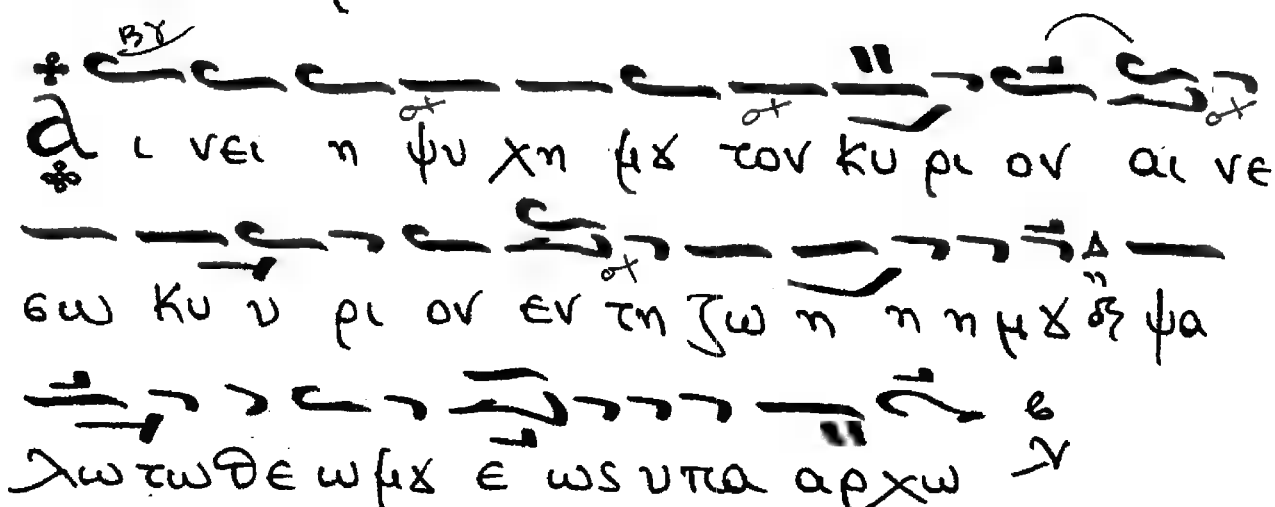 βγ
α ι νει η ψυ χη μȣ τον κυ ρι ον αι νε
σω κυ υ ρι ον εν τη ζω η η η μȣ Δ ψα
λω τω θε ω μȣ ε ως υπα αρχω ν